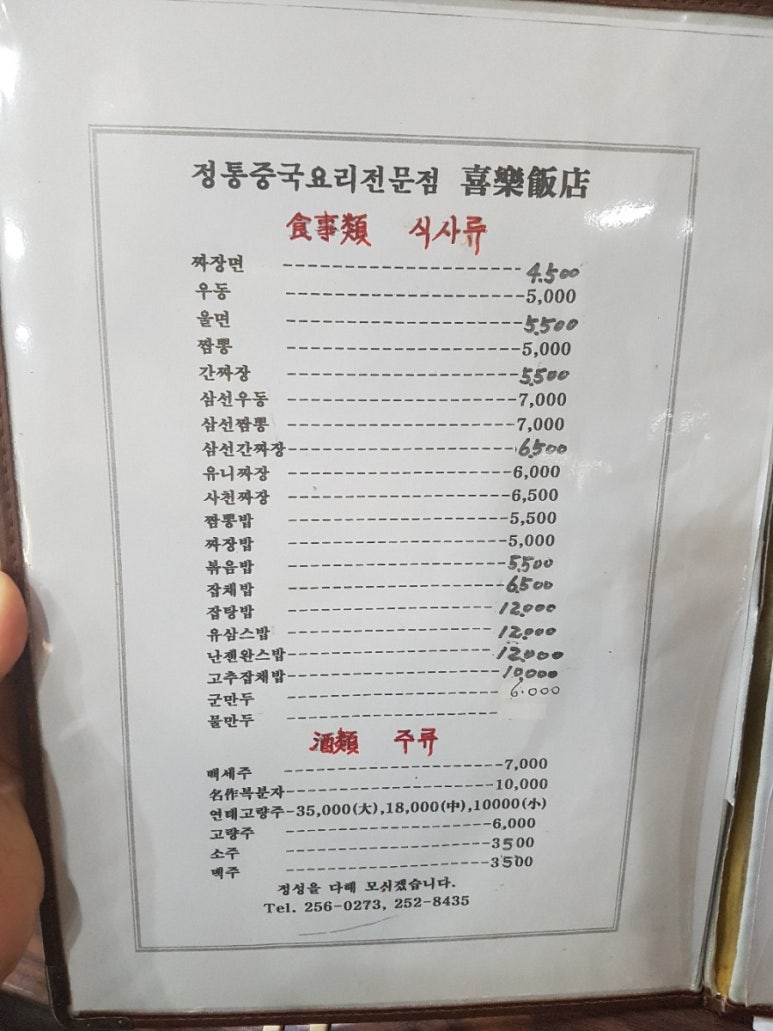 정통중국요리전문점 喜樂飯店
食事類 식사류
짜장면 --------------------- 4.500
우동 --------------------- 5,000
울면 --------------------- 5.500
짬뽕 --------------------- 5,000
간짜장 --------------------- 5.500
삼선우동 --------------------- 7,000
삼선짬뽕 --------------------- 7,000
삼선간짜장 --------------------- 6.500
유니짜장 --------------------- 6,000
사천짜장 --------------------- 6,500
짬뽕밥 --------------------- 5,500
짜장밥 --------------------- 5,000
볶음밥 --------------------- 5.500
잡채밥 --------------------- 6.500
잡탕밥 --------------------- 12.000
유삼스밥 --------------------- 12.000
난젠완스밥 --------------------- 12.000
고추잡채밥 --------------------- 10.000
군만두 --------------------- 6.000
물만두 ---------------------
酒類 주류
백세주 --------------------- 7,000
名作복분자 --------------------- 10,000
연태고량주-35,000(大),18,000(中),10000(小)
고량주 --------------------- 6,000
소주 --------------------- 3500
맥주 --------------------- 3500
정성을 다해 모시겠습니다.
Tel. 256-0273, 252-8435